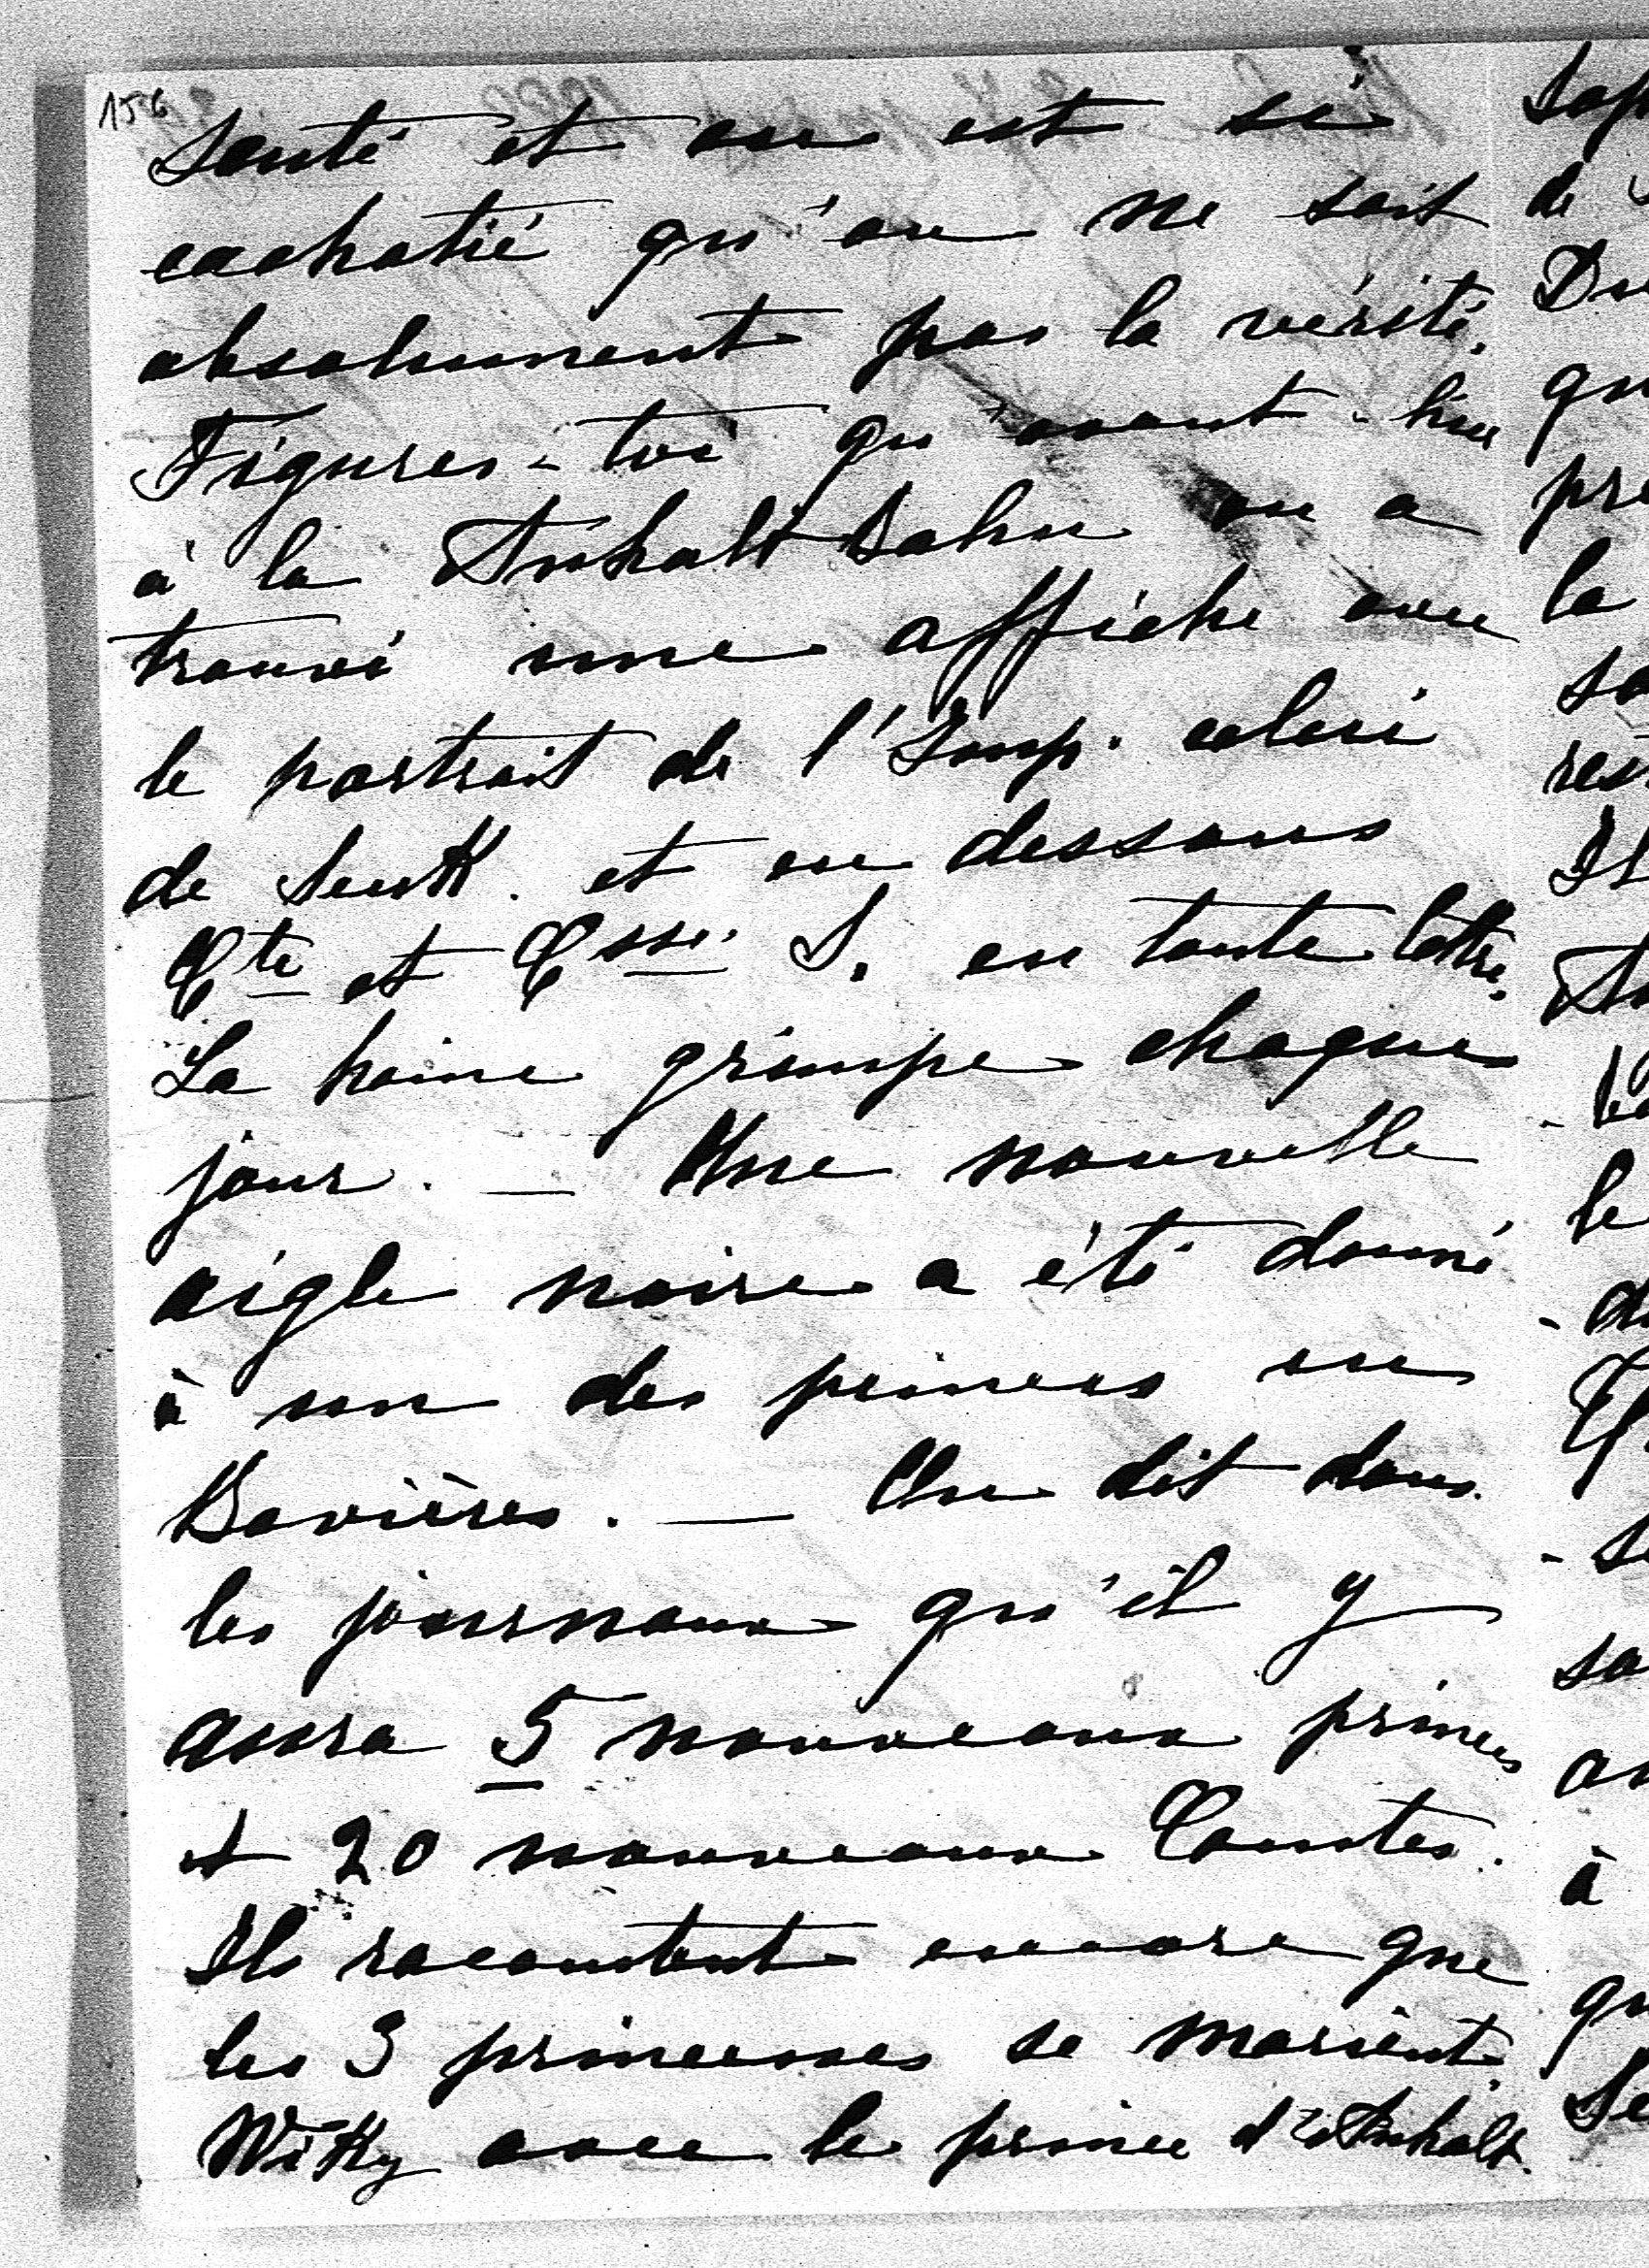 156
santé et on est si
cachotié qu'on ne sait
absolument pas la vérité.
Figures-toi qu'avant-hier
à la Anhalt Bahn on a
trouvé une affiche avec
le portrait de l'Imp. celui
de SeckK. et en dessous
Cte et Csse S. en toute lettre.
La haine grimpe chaque
jour. — Une nouvelle
aigle noire a été donné
à un des princes en
Bavières. — On dit dans
les journaux qu'il y
aura 5 nouveaux princes
et 20 nouveaux Comtes.
Ils racontent encore que
les 3 princesses se marient.
Wikky avec le prince d'Anhalt.